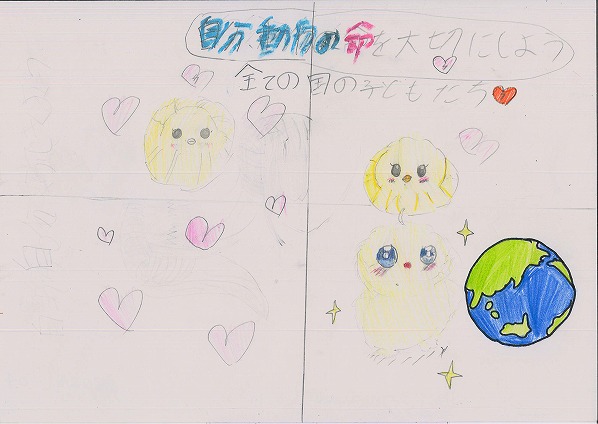 自分動物の命を大切にしよう
全ての国の子どもたち